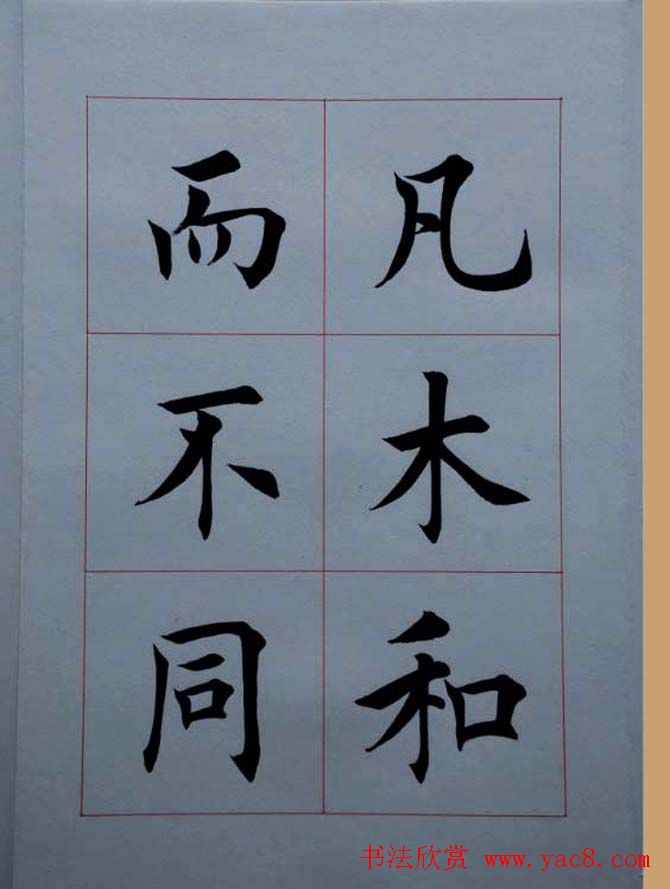 凡木和
而不同
书法欣赏 www.yac8.com